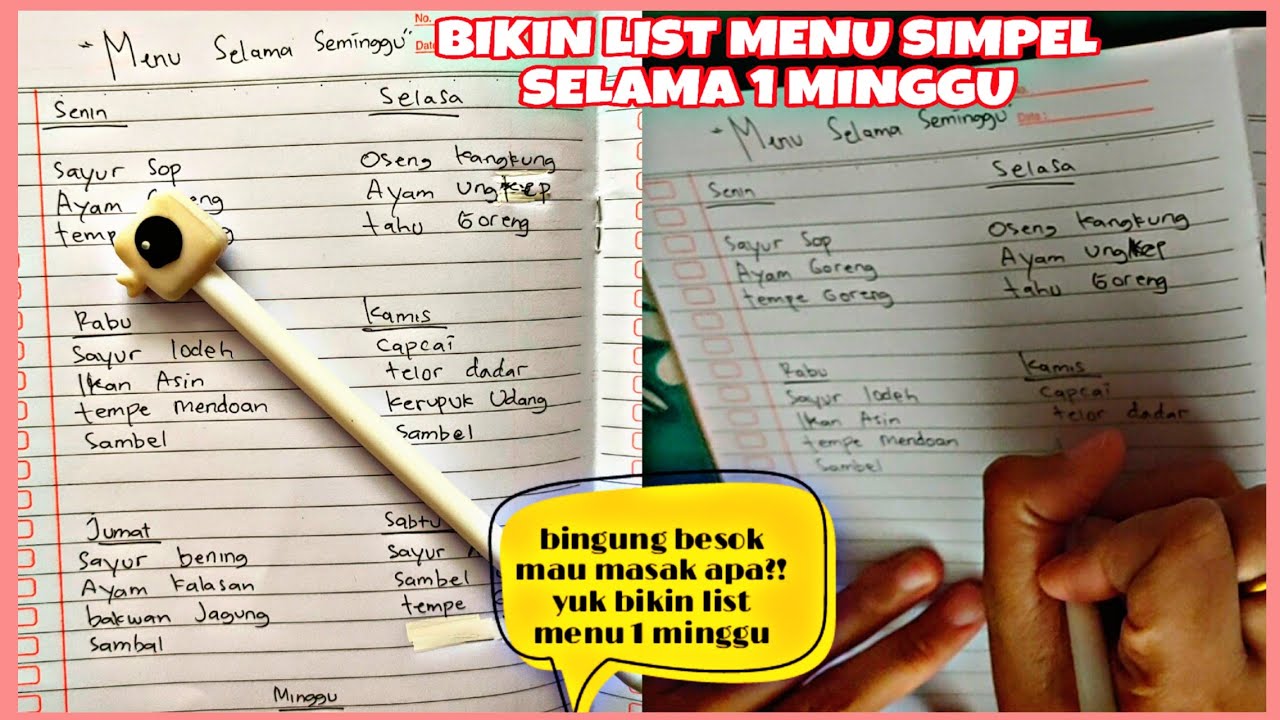 BIKIN LIST MENU SIMPEL
SELAMA 1 MINGGU
No.
Date
"Menu Selama Seminggu"
Senin
Sayur Sop
Ayam
temp
Selasa
Oseng kangkung
Ayam ungkep
tahu Goreng
Rabu
Sayur lodeh
Ikan Asin
tempe mendoan
Sambel
Kamis
Capcai
telor dadar
kerupuk Udang
Sambel
Jumat
Sayur bening
Ayam kalasan
bakwan Jagung
Sambal
Sabtu
Sayur
Sambel
tempe
Minggu
Date:
"Menu Selama Seminggu"
Senin
Sayur Sop
Ayam Goreng
tempe Goreng
Selasa
Oseng kangkung
Ayam ungkep
tahu Goreng
Rabu
Sayur lodeh
Ikan Asin
tempe mendoan
Sambel
Kamis
Capcai
telor dadar
bingung besok
mau masak apa?!
yuk bikin list
menu 1 minggu